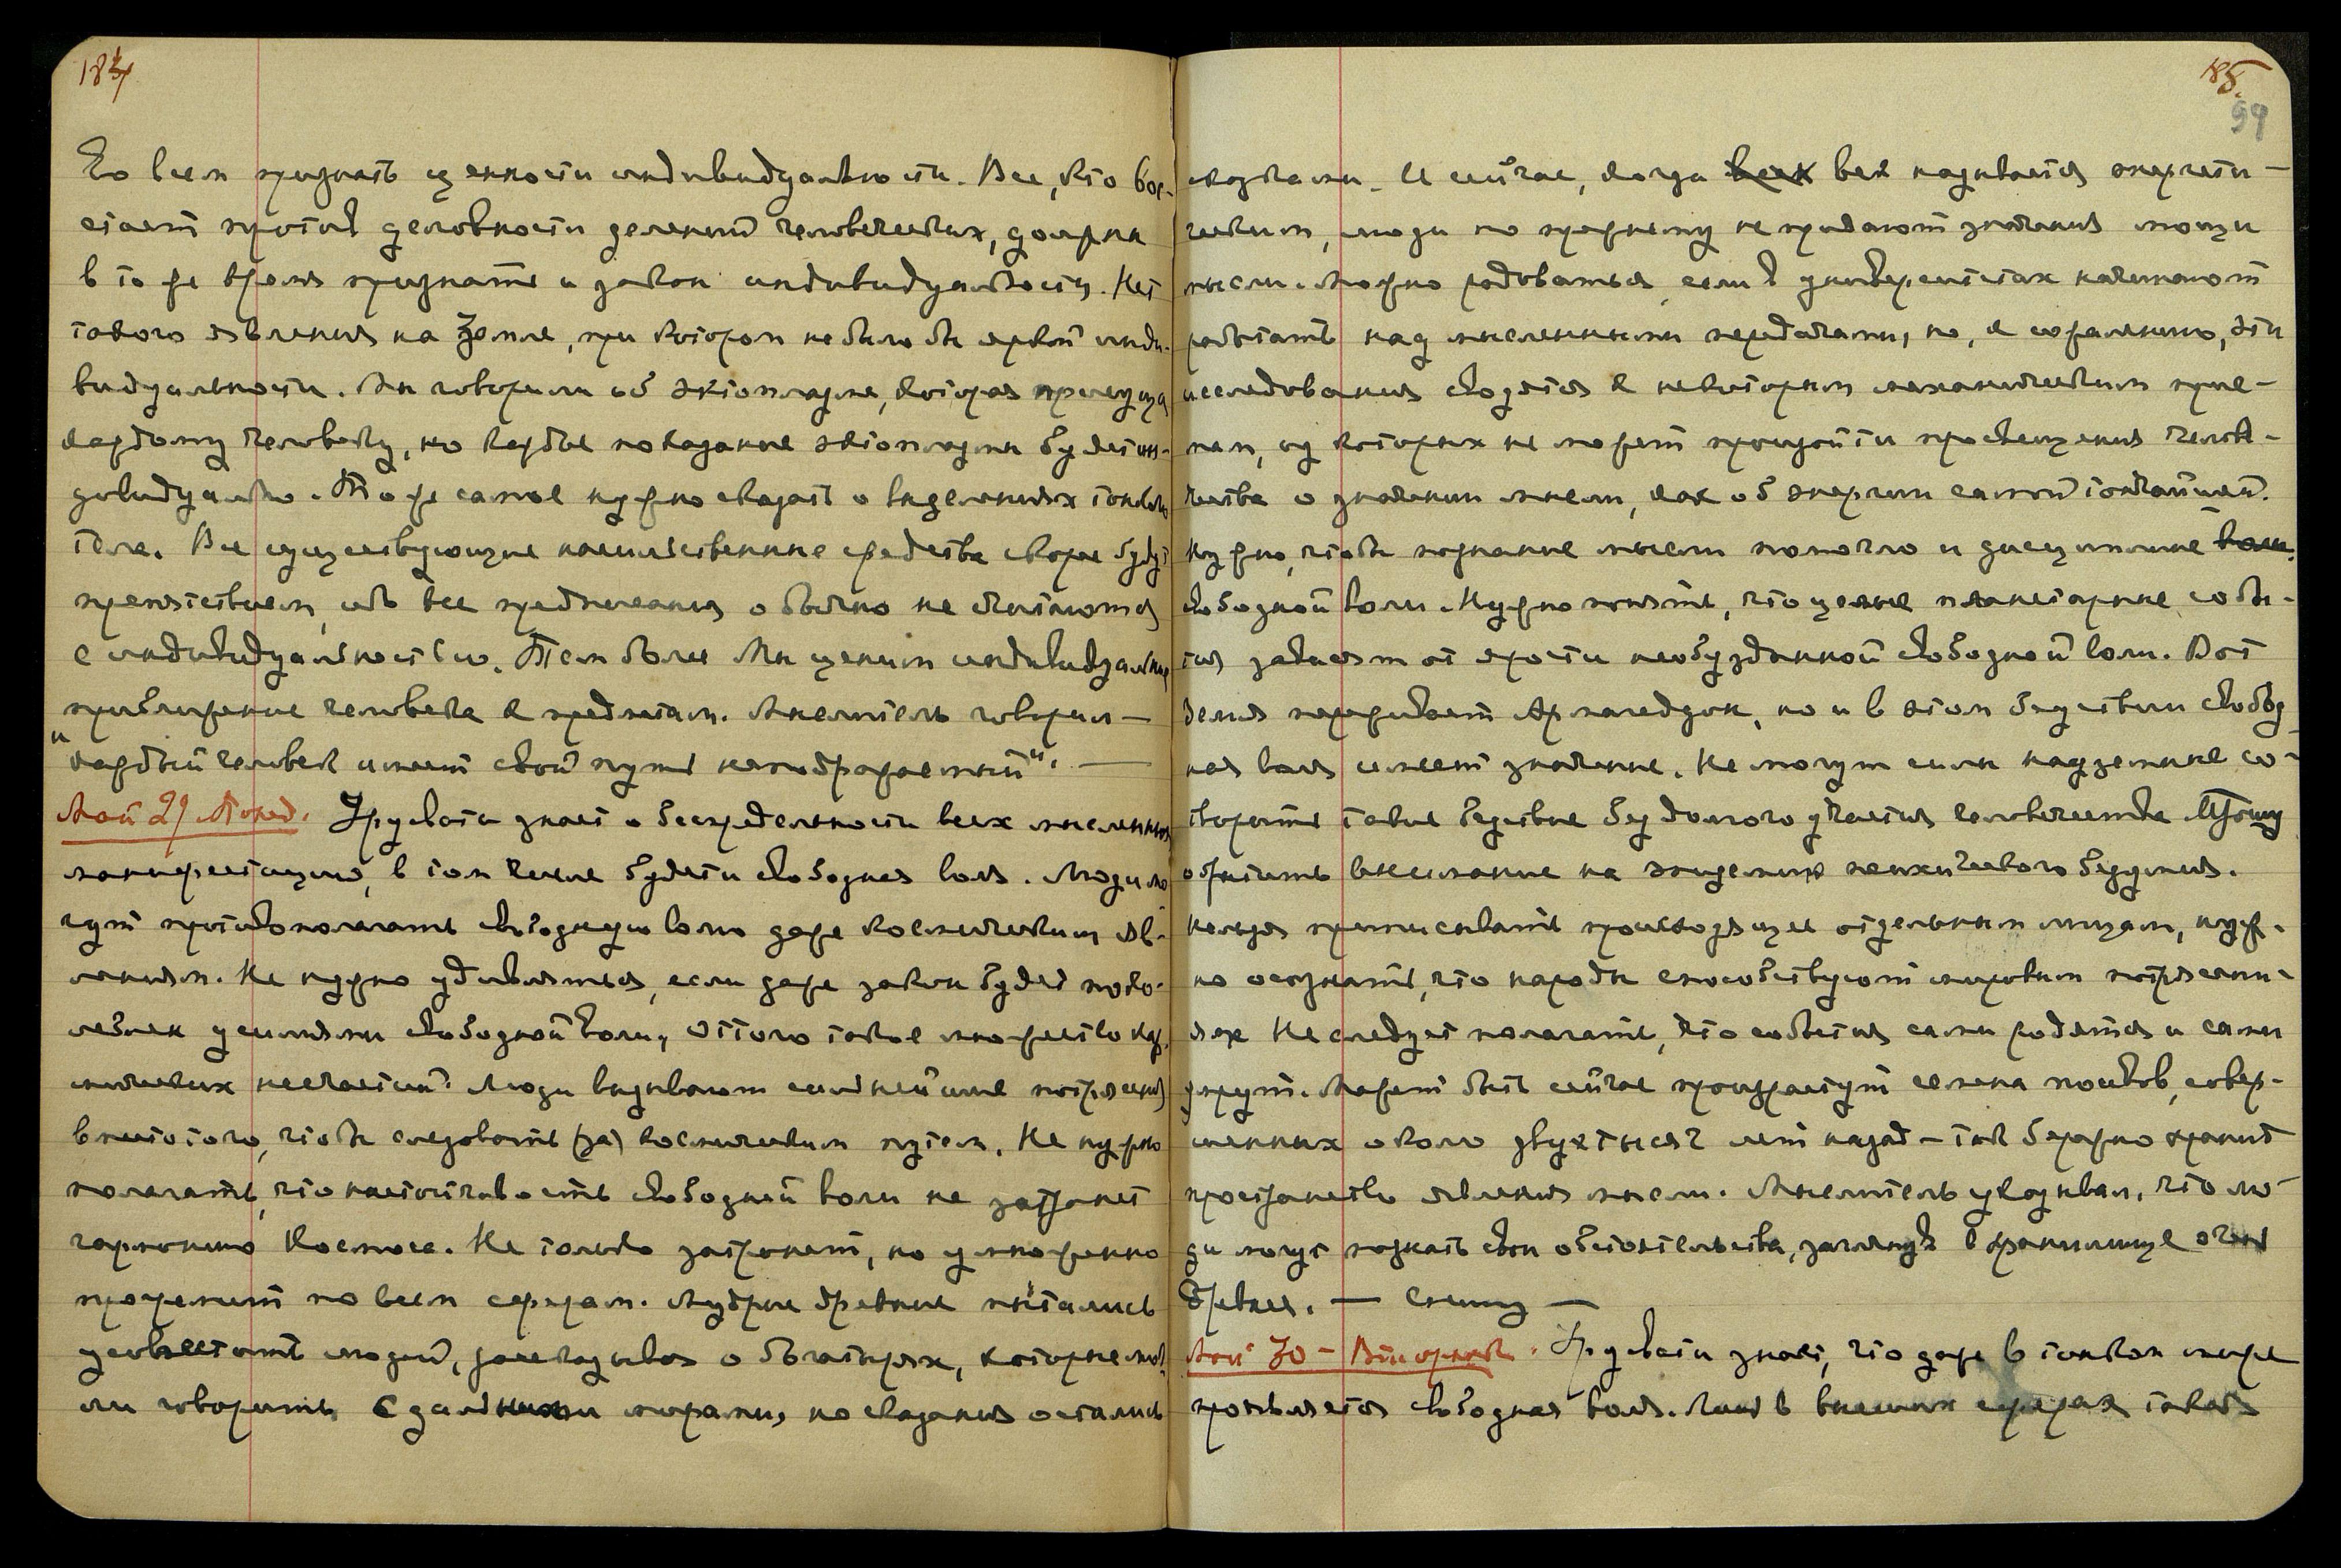 184
Во всем признать ценность индивидуальности. Все, кто вос-
стает против условности делений человеческих, должны
в то же время признать и закон индивидуальности. Нет
такого явления на Земле, при котором не было бы яркой инди-
видуальности. Мы говорили об эктоплазме, которая присуща
каждому человеку, но каждое показание эктоплазмы будет ин-
дивидуально. То же самое нужно сказать о выделениях тонкого
тела. Все существующие насильственные средства скорее будут
препятствием, ибо все предписания обычно не считаются
с индивидуальностью. Тем более Мы ценим индивидуальное
приближение человека к предметам. Мыслитель говорил —
"каждый человек имеет свой путь неподражаемый". —
Май 29 Понед. Урусвати знает о беспредельности всех мысленных
манифестаций, в том числе будет и свободная воля. Люди мо-
гут противополагать свободную волю даже космическим яв-
лениям. Не нужно удивляться, если даже закон будет поко-
леблен усилиями свободной воли, оттого такое множество кар-
мических несчастий. Люди вызывают сильнейшие потрясения
вместо того, чтобы следовать (за) космическим путем. Не нужно
полагать, что настойчивость свободной воли не затронет
гармонию Космоса. Не только затронет, но умноженно
прогремит по всем сферам. Мудрые древние пытались
усовестить людей, рассказывая о богатырях, которые мог-
ли говорить с дальними мирами, но сказания остались
185.
99
сказками. И сейчас, когда век называется энергети-
ческим, люди по прежнему не придают значения мощи
мысли. Можно радоваться, если в университетах начинают
работать над мысленными передачами, но, к сожалению, эти
исследования сводятся к некоторым механическим прие-
мам, из которых не может произойти просвещения челове-
чества о значении мысли, как об энергии самой тончайшей.
Нужно, чтобы познание мысли помогло и дисциплине
свободной воли. Нужно понять, что целые планетарные собы-
тия зависят от ярости необузданной свободной воли. Вот
Земля переживает Армагеддон, но и в этом бедствии свобод-
ная воля имеет значение. Не могут силы надземные со-
творить такое бедствие без долгого участия человечества. Нужно
обратить внимание на эпидемию психического безумия.
Нельзя приписывать происходящее отдельным лицам, нуж-
но осознать, что народы способствуют мировым потрясени-
ям. Не следует полагать, что события сами родятся и сами
умрут. Может быть сейчас произрастут семена посевов, совер-
шенных около двух тысяч лет назад — так бережно хранит
пространство явления мысли. Мыслитель указывал, что лю-
ди могут познать свои обстоятельства, заглянув в хранилище очень
древнее. — Спешу —
Май 30 — Вторник. Урусвати знает, что даже в тонком мире
проявляется свободная воля. Лишь в высших сферах такая